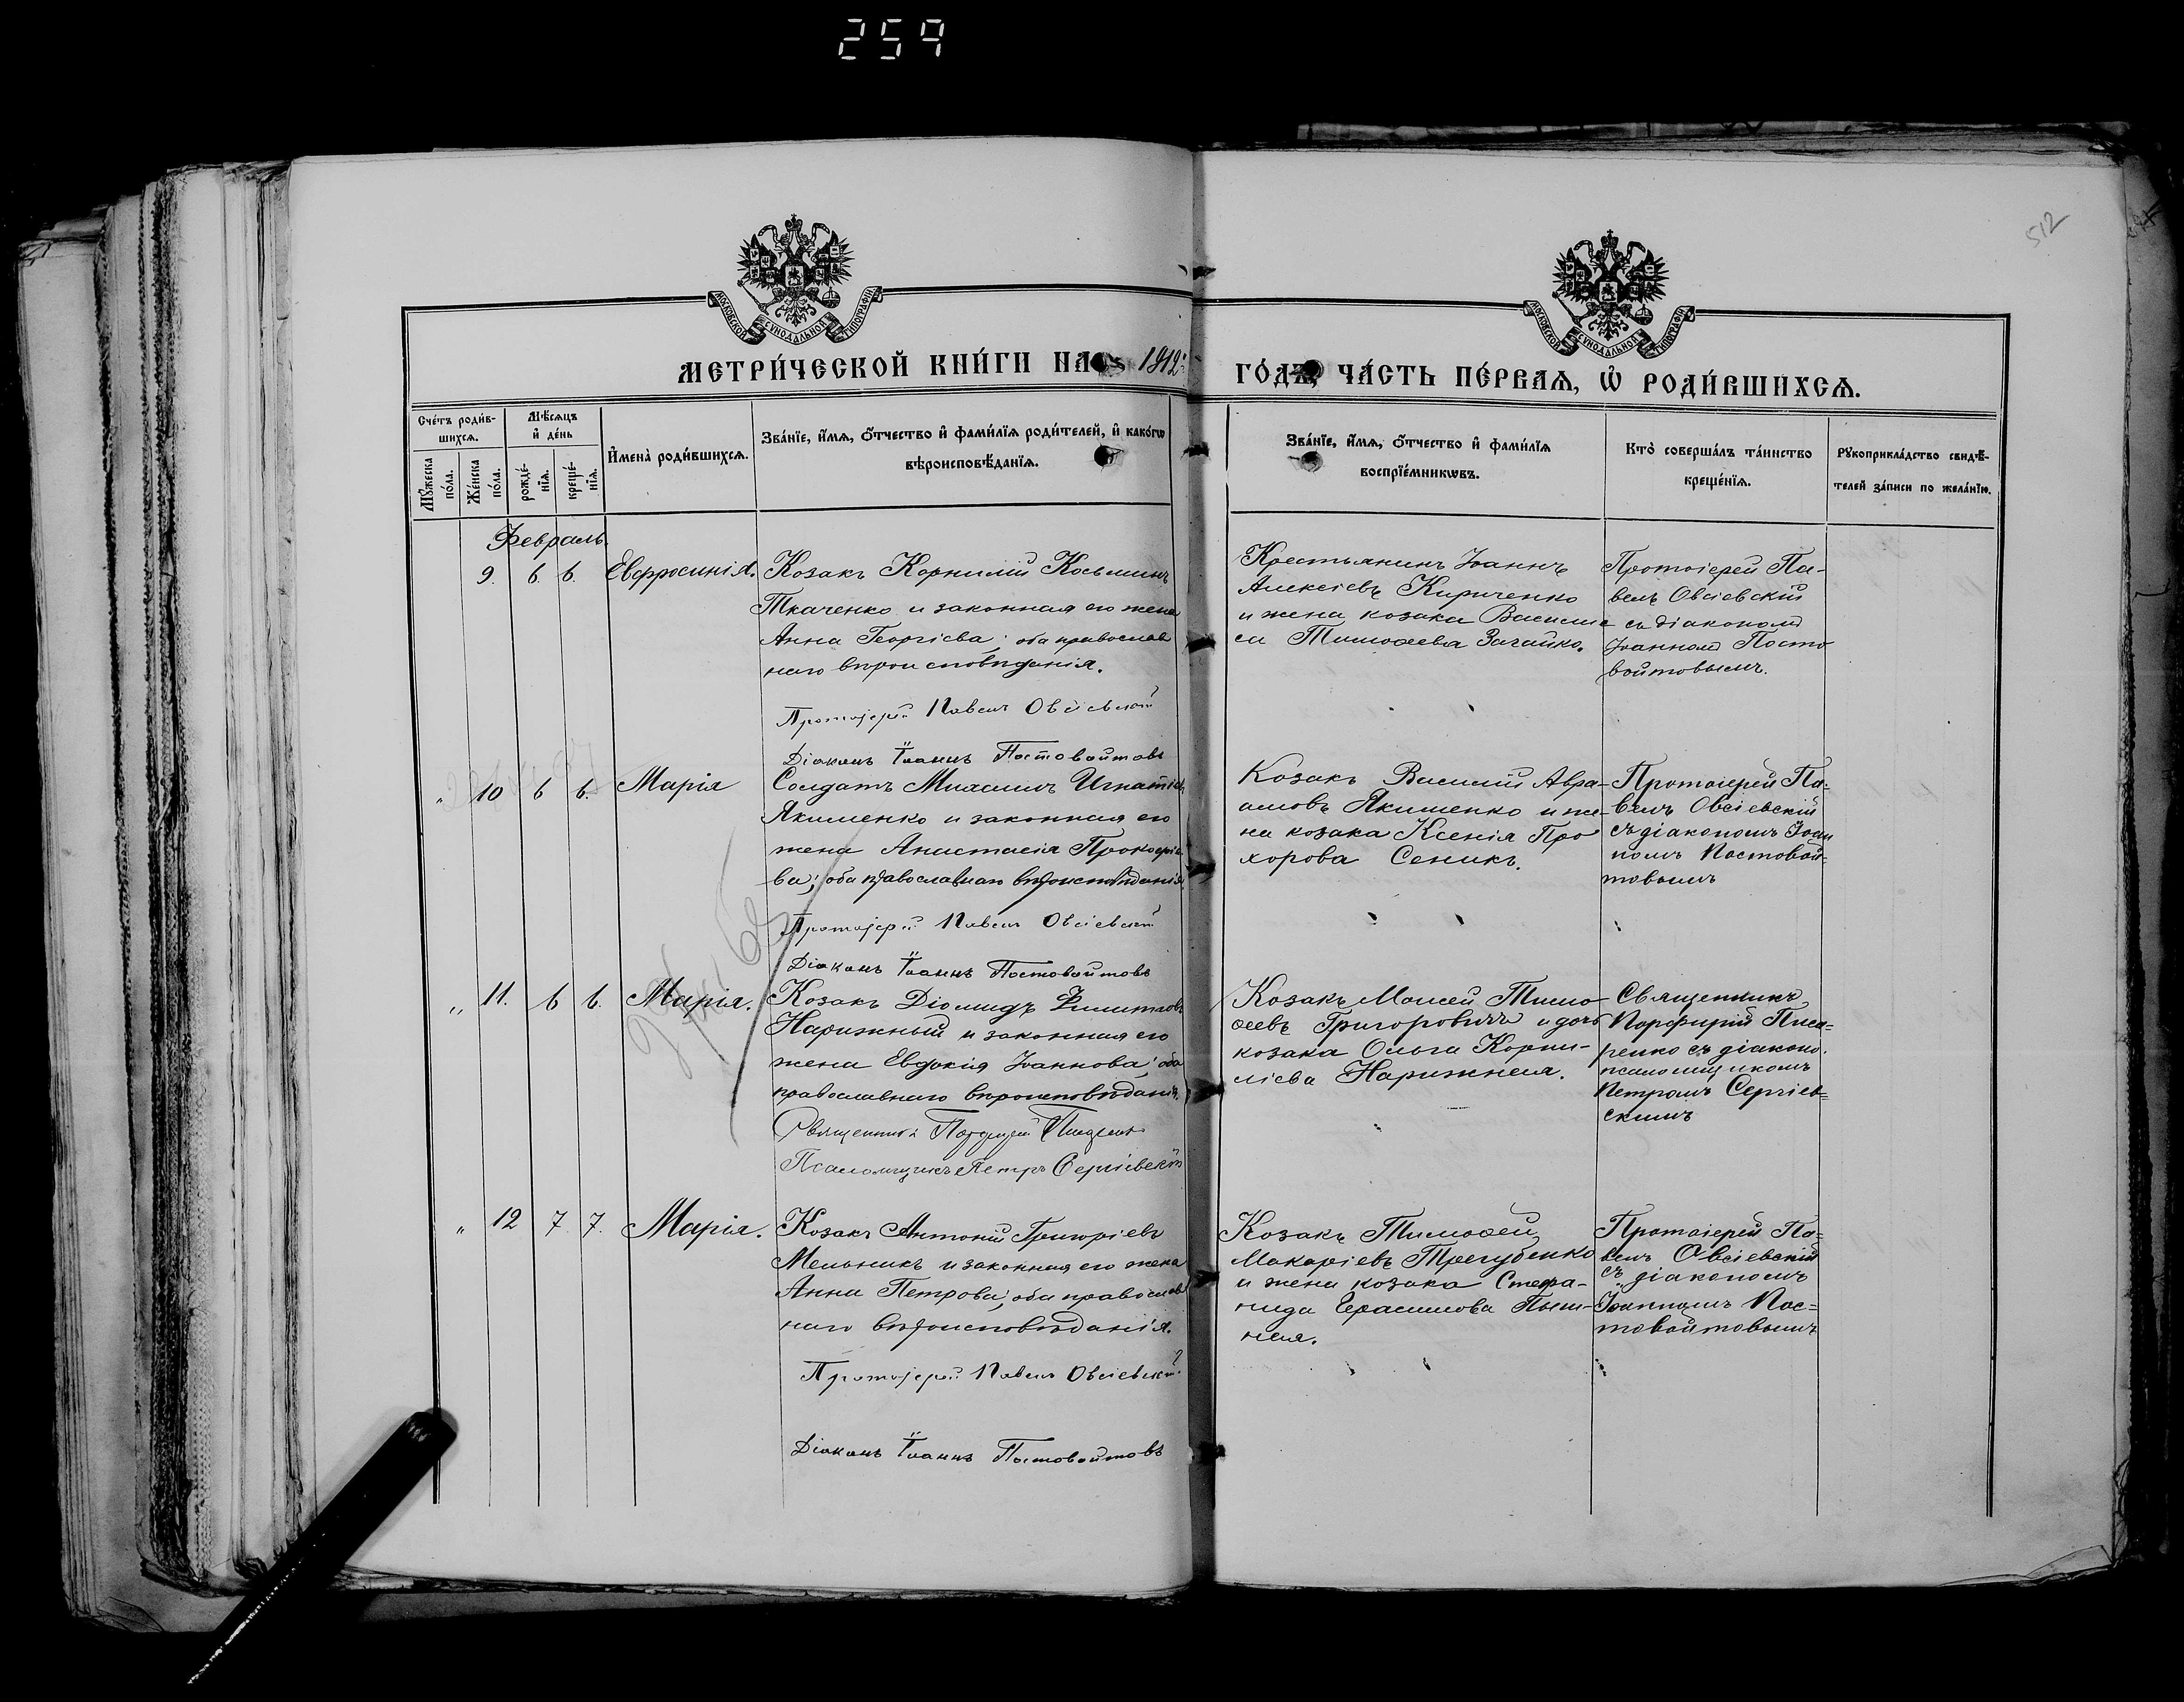 259
512
МОСКОВСКОЙ СѴНОДАЛЬНОЙ ТИПОГРАФІИ
МОСКОВСКОЙ СѴНОДАЛЬНОЙ ТИПОГРАФІИ
МЕТРИ́ЧЕСКОЙ КНИ́ГИ НА 1912
ГО́ДЪ, ЧА́СТЬ ПЕ́РВАѦ, Ѡ҆ РОДИ́ВШИХСѦ.
Сче́тъ роди́в-
шихсѧ.
Мꙋ́жеска
по́ла.
Же́нска
по́ла.
Мѣ́сѧцъ
и҆ де́нь
рожде́-
нїѧ.
креще́-
нїѧ.
И҆мена̀ роди́вшихсѧ.
Зва́нїе, и҆́мѧ, ѻ҆́тчество и҆ фами́лїѧ роди́телей, и҆ како́гѡ
вѣроисповѣ́данїѧ.
Зва́нїе, и҆́мѧ, ѻ҆́тчество и҆ фами́лїѧ
воспрїе́мникѡвъ.
Кто̀ соверша́лъ та́инство
креще́нїѧ.
Рꙋкоприкла́дство свидѣ́-
телей за́писи по жела́нїю.
Февраль.
9. 6. 6. Евфросинія.
Козакъ Корнилій Косьминъ
Ткаченко и законная его жена
Анна Георгіева; оба православ
наго вѣроисповѣданія.
Протоіерей Павелъ Овсіевскій
Діаконъ Іоаннъ Постовойтовъ
Крестьянинъ Іоаннъ
Алексіевъ Кириченко
и жена козака Василис
са Тимоѳеева Загайко.
Протоіерей Па-
велъ Овсіевскій
съ діакономъ
Іоанномъ Посто
войтовымъ.
„ 10 6 6. Марія
Солдатъ Михаилъ Игнатіевъ
Якименко и законная его
жена Анастасія Прокофіе
ва; оба православнаго вѣроисповѣданія
Протоіерей Павелъ Овсіевскій
Діаконъ Іоаннъ Постовойтовъ
Козакъ Василій Авра-
амовъ Якименко и же-
на козака Ксенія Про
хорова Сеникъ.
Протоіерей Па-
велъ Овсіевскій
съ діакономъ Іоан
номъ Постовой-
товымъ
„ 11. 6 6. Марія.
Козакъ Діомидъ Филипповъ
Нарижный и законная его
жена Евдокія Іоаннова; оба
православнаго вѣроисповѣданія.
Священникъ Порфирій Писаренко
Псаломщикъ Петръ Сергіевскій
Козакъ Моисей Тимо
ѳеевъ Григоровичъ и дочь
козака Ольга Корни-
ліева Нарижная.
Священникъ
Порфирій Писа-
ренко съ діаконо.
псаломщикомъ
Петромъ Сергіев-
скимъ
„ 12 7. 7. Марія.
Козакъ Антоній Григоріевъ
Мельникъ и законная его жена
Анна Петрова; оба православ
наго вѣроисповѣданія.
Протоіерей Павелъ Овсіевскій
Діаконъ Іоаннъ Постовойтовъ
Козакъ Тимоѳей
Макаріевъ Трегубенко
и жена козака Стефа-
нида Герасимова Пыш-
ная.
Протоіерей Па-
велъ Овсіевскій
съ діакономъ
Іоанномъ Пос-
товойтовымъ